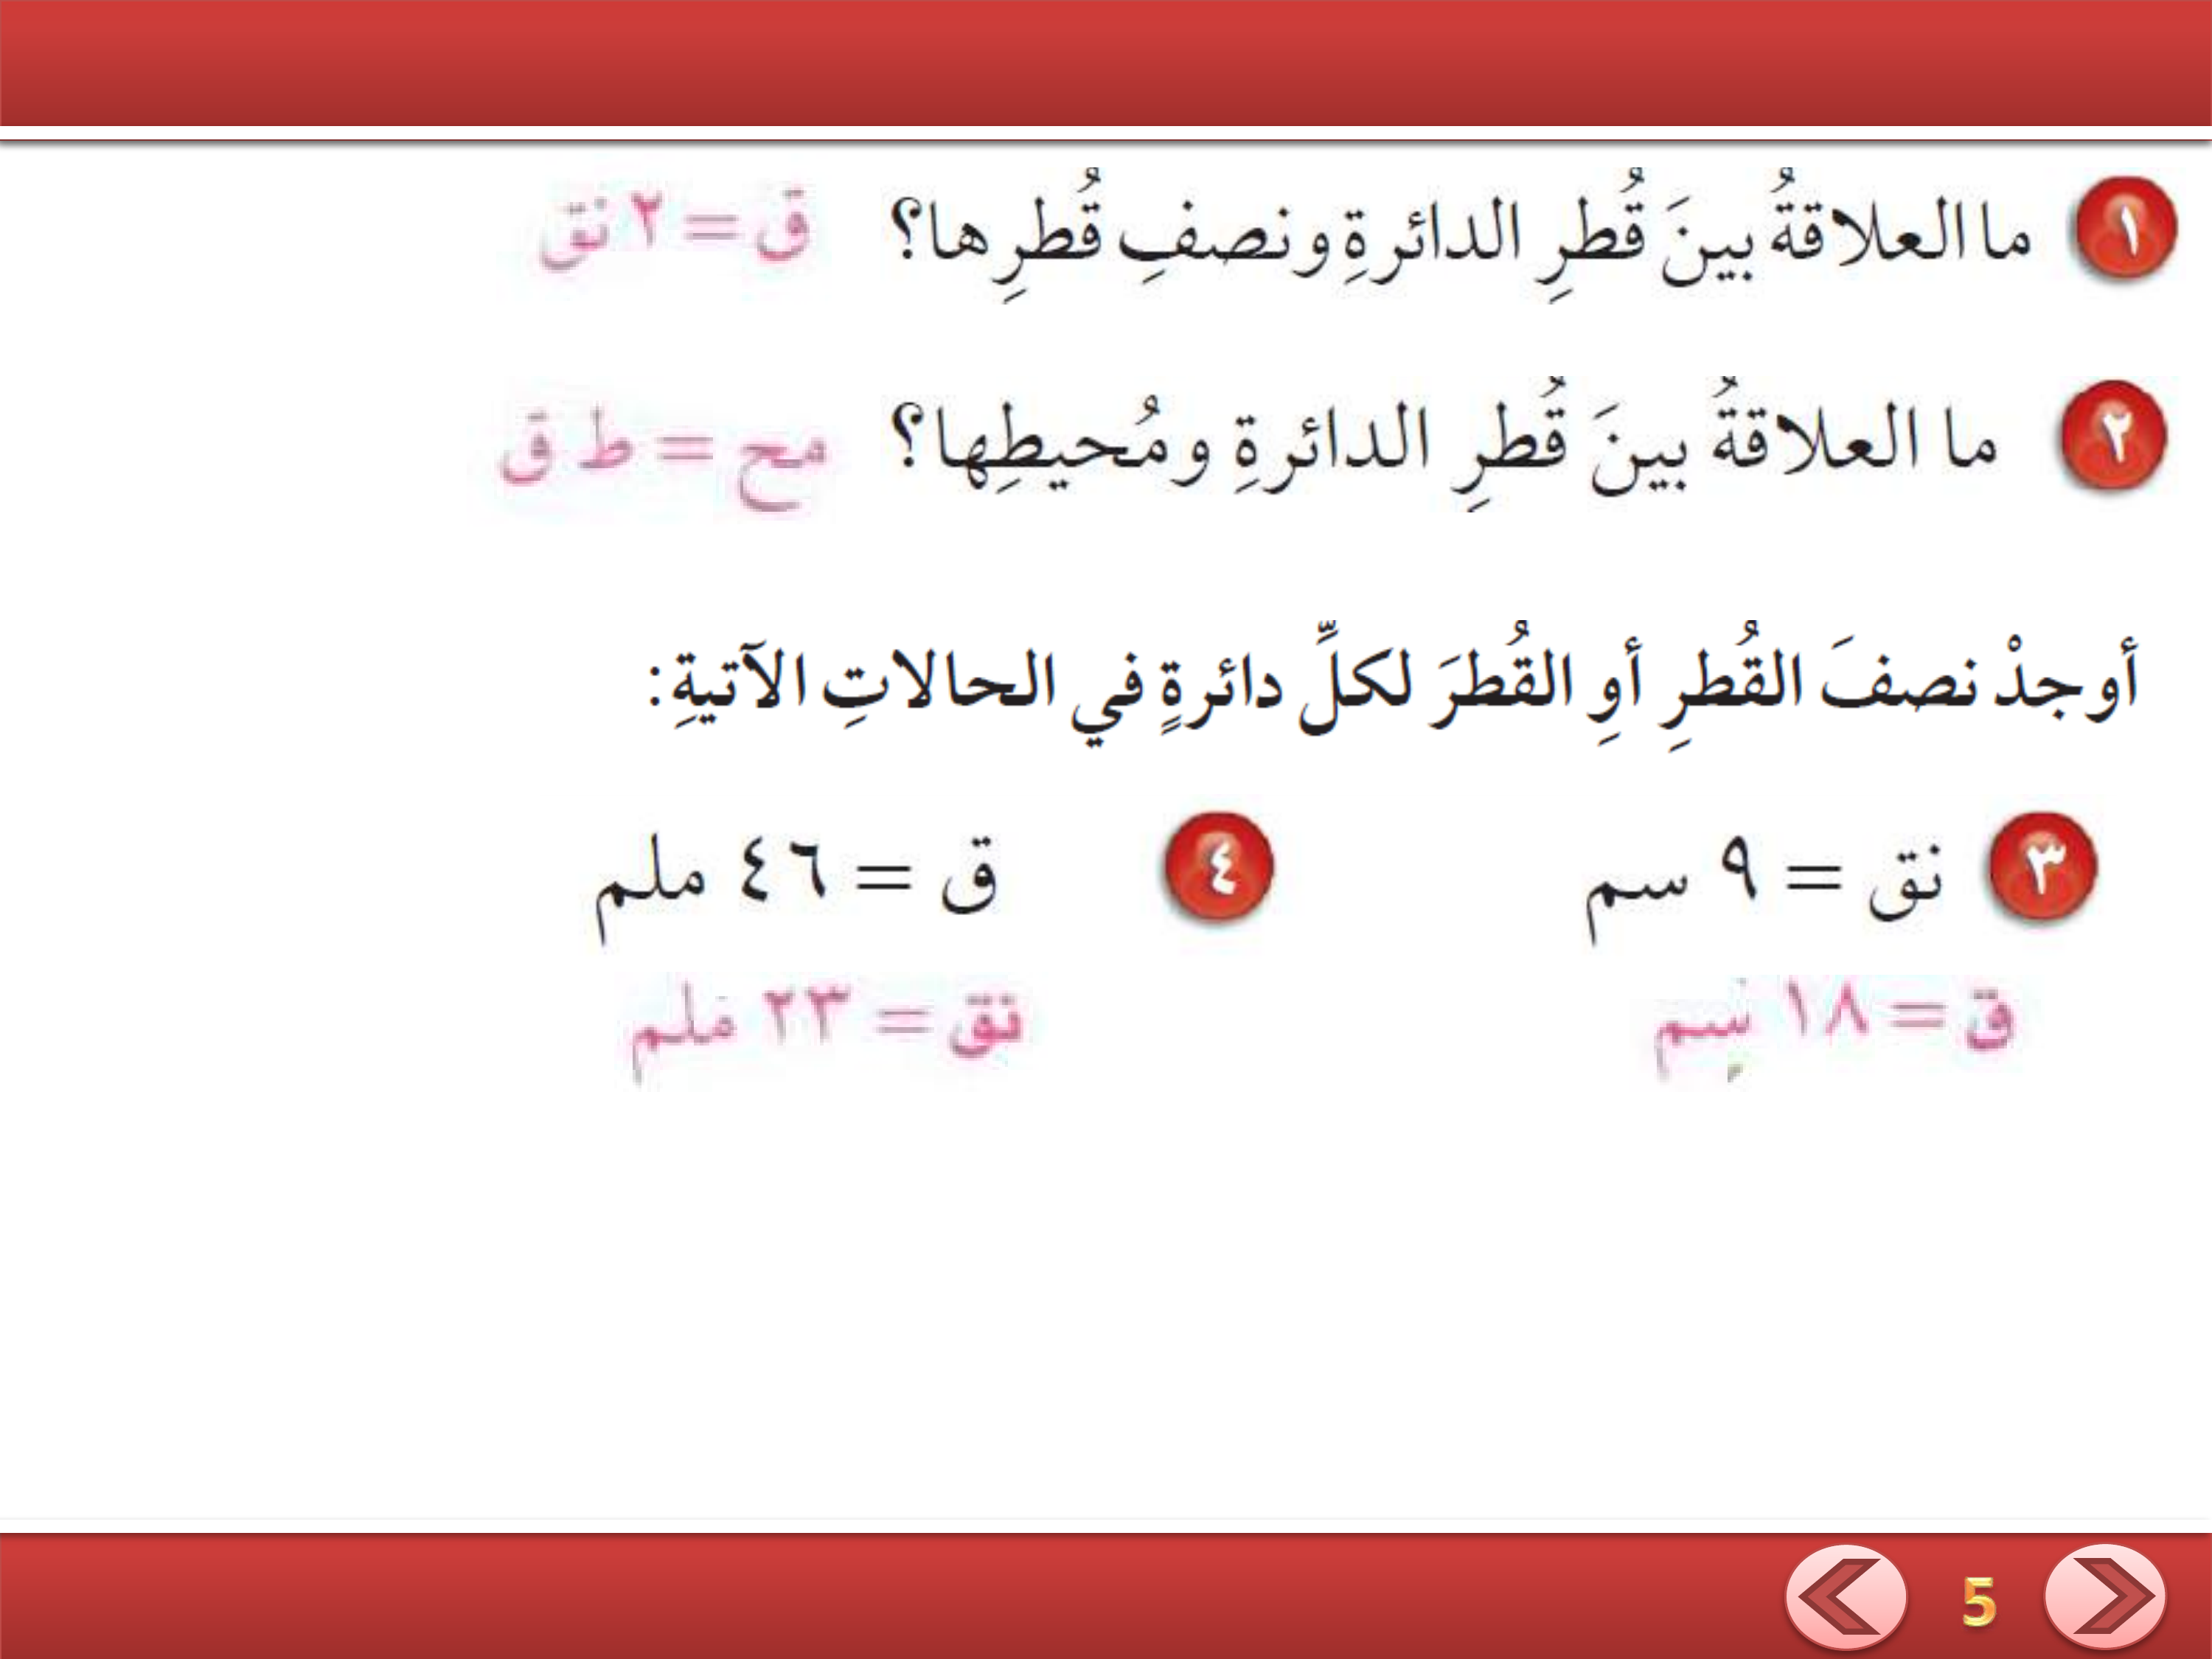 ١ ما العلاقةُ بينَ قُطرِ الدائرةِ ونصفِ قُطرِها؟ ق = ٢ نق
٢ ما العلاقةُ بينَ قُطرِ الدائرةِ ومُحيطِها؟ مح = ط ق
أوجدْ نصفَ القُطرِ أوِ القُطرَ لكلِّ دائرةٍ في الحالاتِ الآتيةِ:
٣ نق = ٩ سم ٤ ق = ٤٦ ملم
ق = ١٨ سم نق = ٢٣ ملم
5